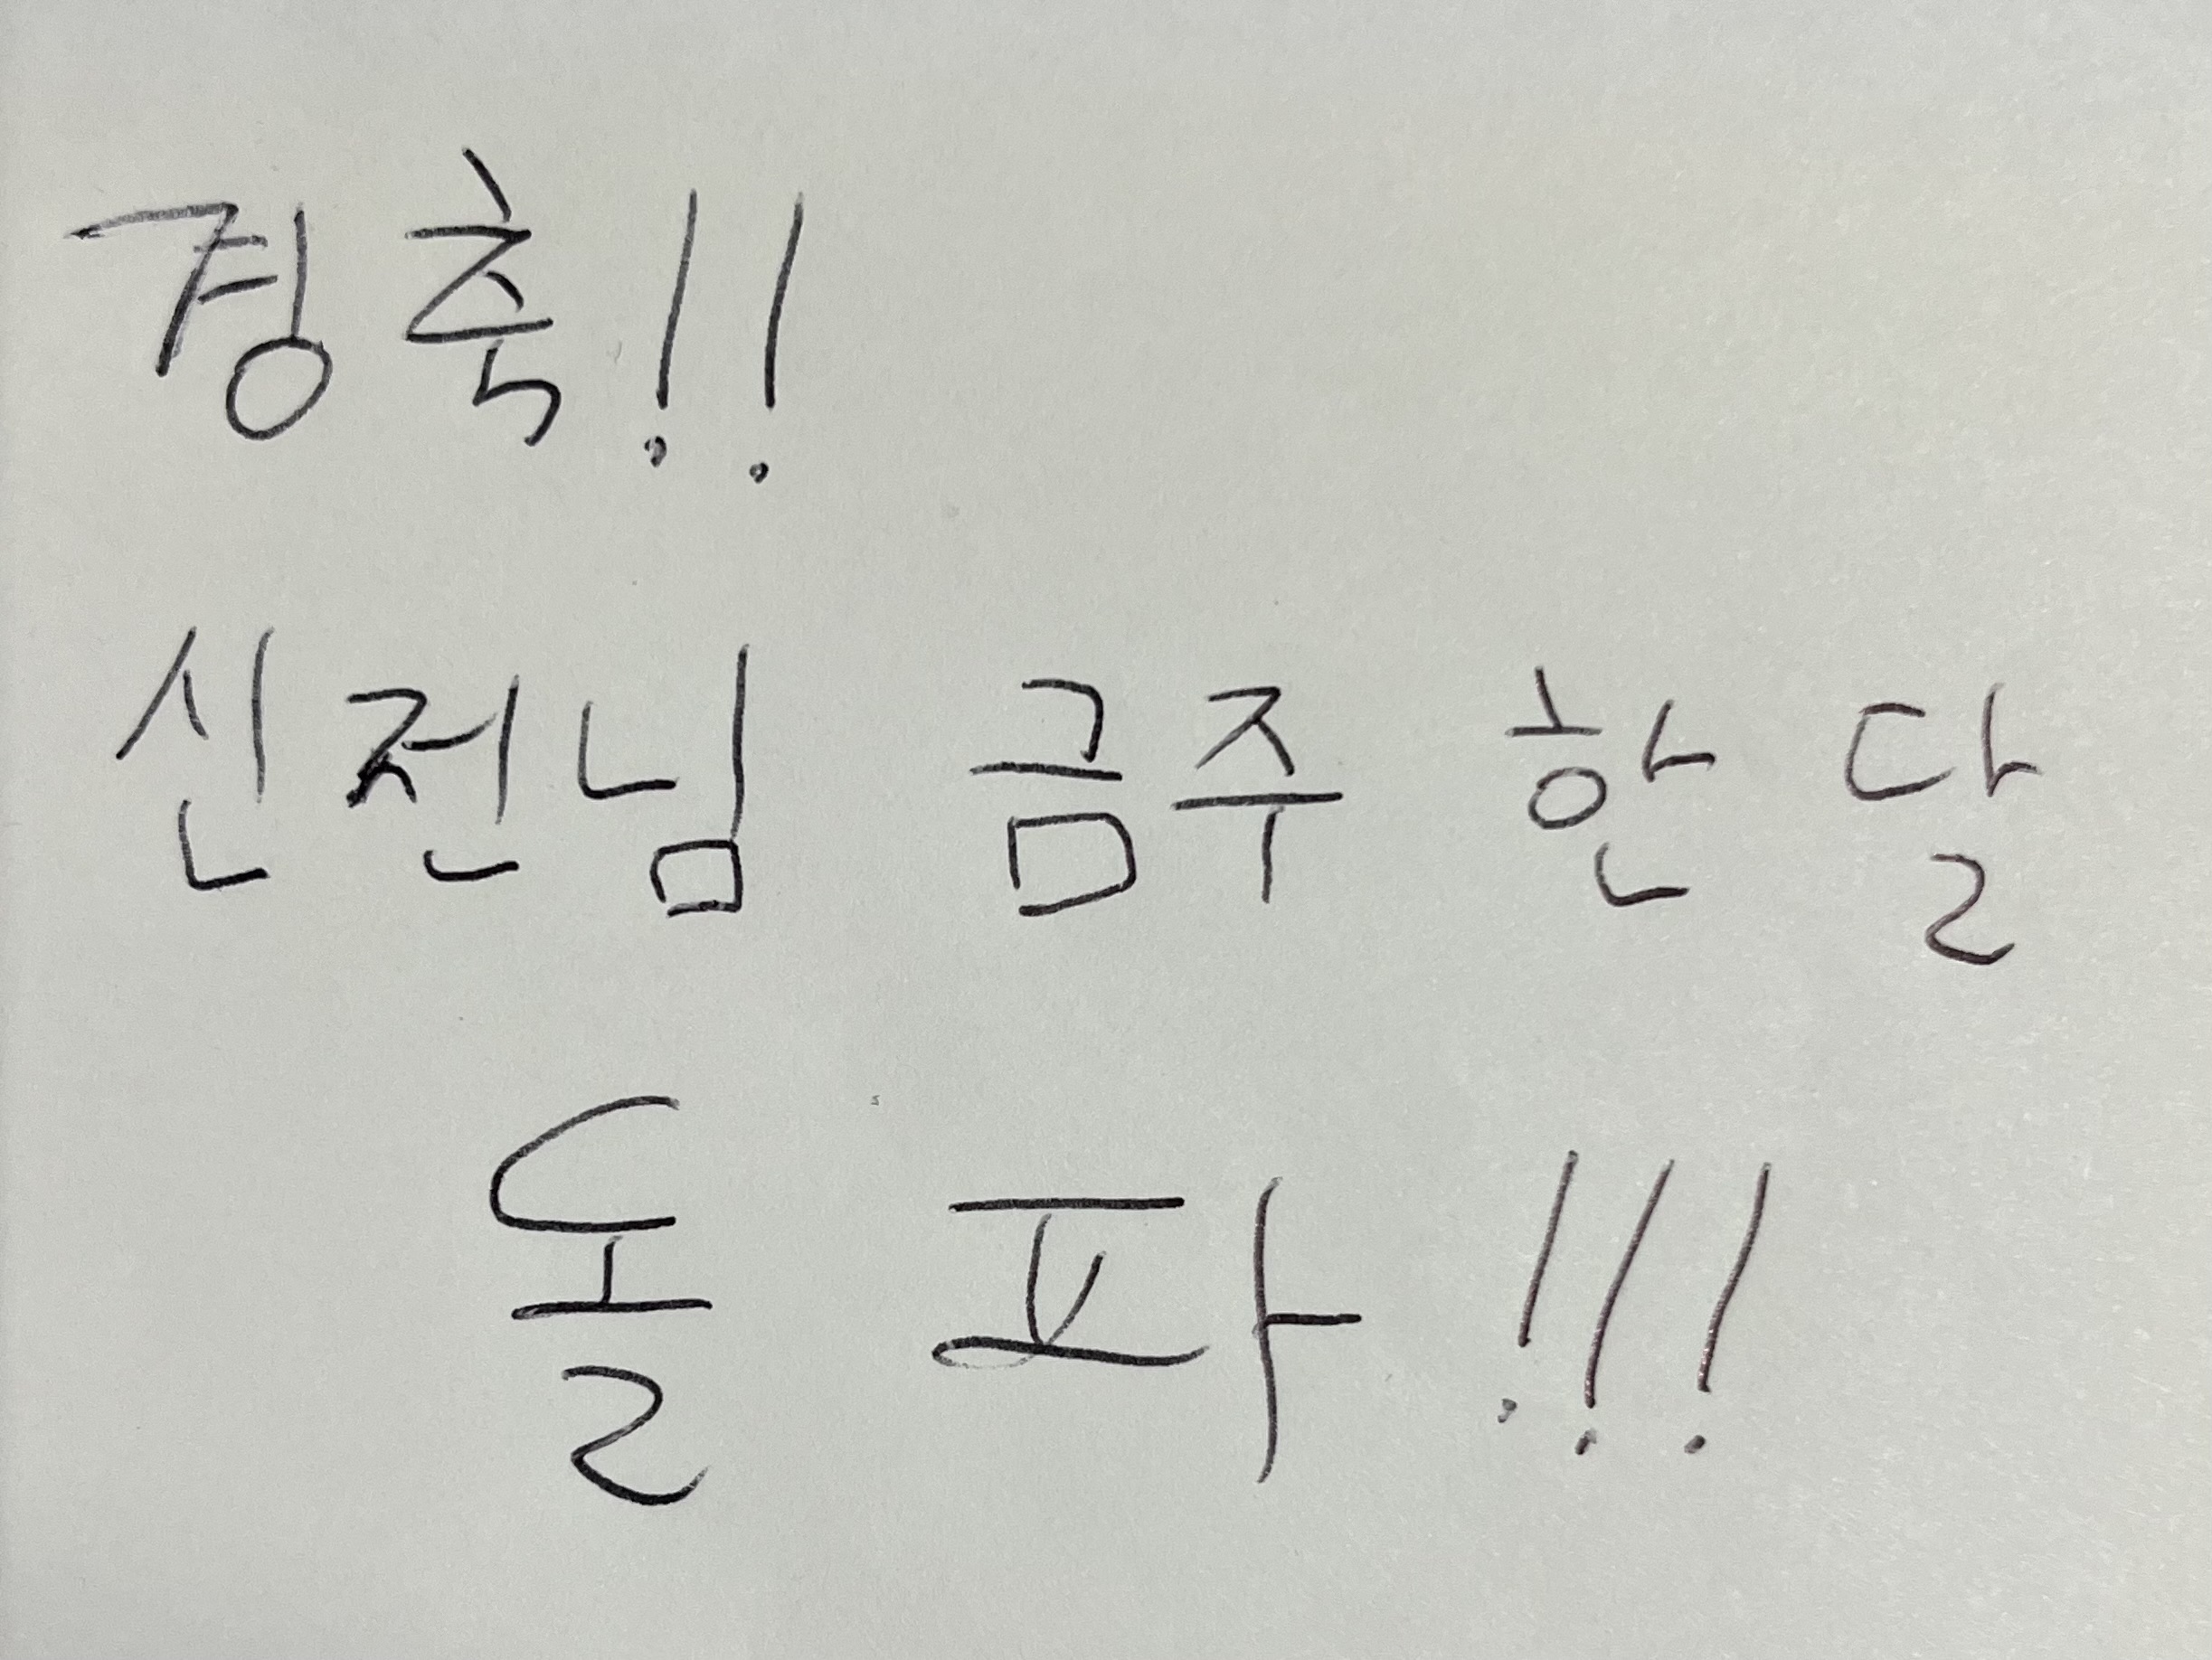 경축!!
신전님 금주 한 달
돌파!!!